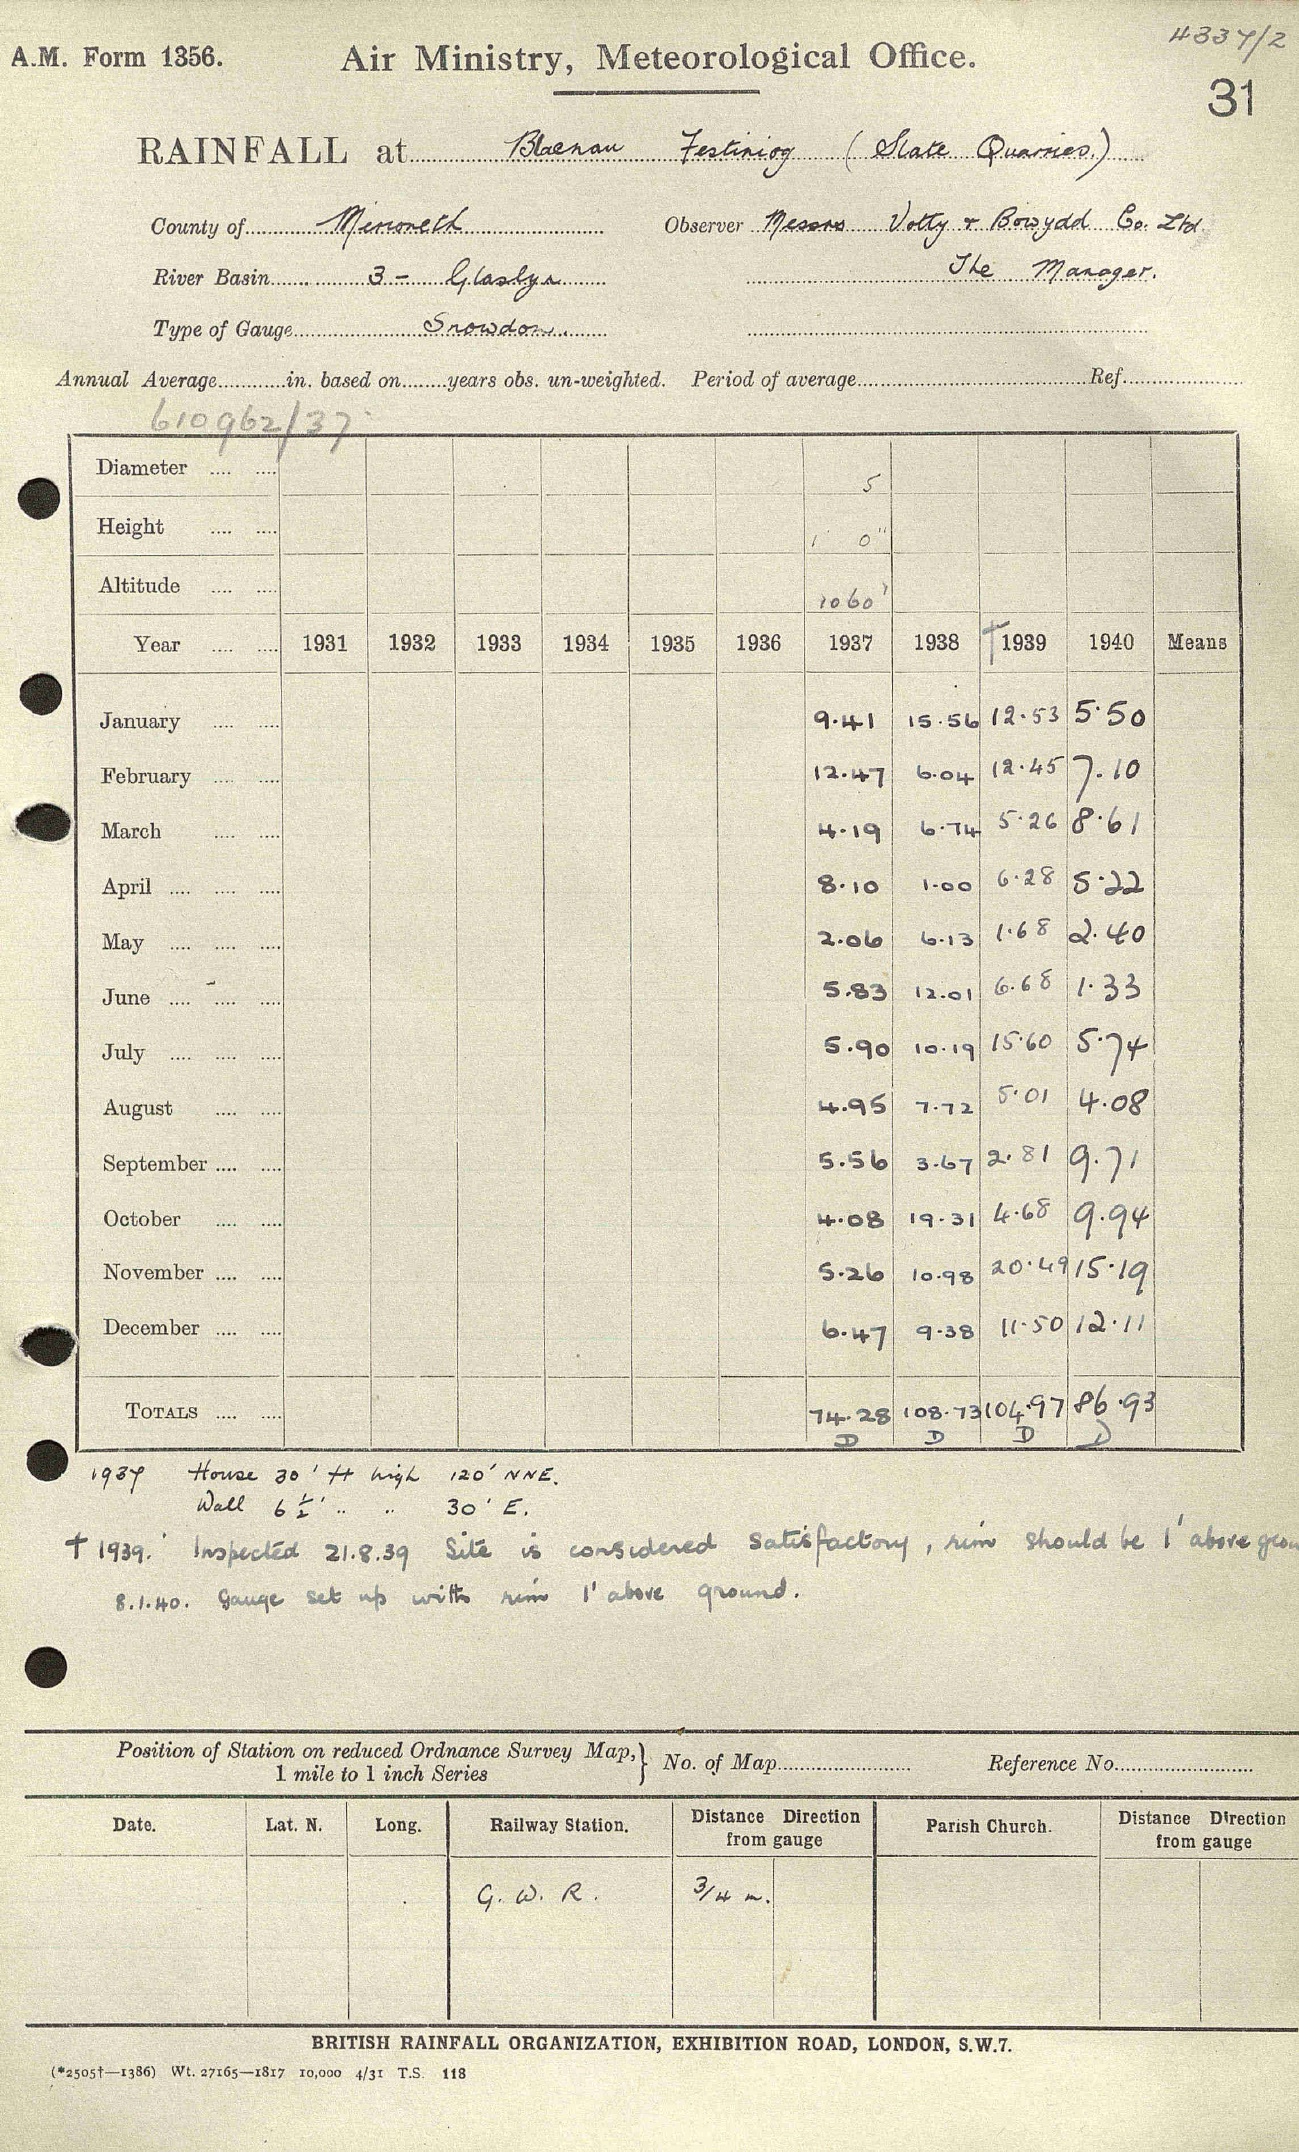 4337/2
A.M. Form 1356. Air Ministry, Meteorological Office.
31
RAINFALL at Blaenau Festiniog (Slate Quarries.)
County of Merioneth Observer Messrs Votty & Bowydd Co. Ltd.
River Basin 3 - Glaslyn The Manager.
Type of Gauge Snowdon
Annual Average in. based on years obs. un-weighted. Period of average Ref.
610962/37
Diameter 5
Height 1' 0"
Altitude 1060'
Year 1931 1932 1933 1934 1935 1936 1937 1938 † 1939 1940 Means
January 9.41 15.56 12.53 5.50
February 12.47 6.04 12.45 7.10
March 4.19 6.74 5.26 8.61
April 8.10 1.00 6.28 5.22
May 2.06 6.13 1.68 2.40
June 5.83 12.01 6.68 1.33
July 5.90 10.19 15.60 5.74
August 4.95 7.72 5.01 4.08
September 5.56 3.67 2.81 9.71
October 4.08 19.31 4.68 9.94
November 5.26 10.98 20.49 15.19
December 6.47 9.38 11.50 12.11
TOTALS 74.28 108.73 104.97 86.93
D D D D
1937 House 30' ft high 120' NNE.
Wall 6½' " " 30' E.
† 1939. Inspected 21.8.39 Site is considered satisfactory, rim should be 1' above groun
8.1.40. Gauge set up with rim 1' above ground.
Position of Station on reduced Ordnance Survey Map,} No. of Map Reference No.
1 mile to 1 inch Series
Date. Lat. N. Long. Railway Station. Distance Direction from gauge Parish Church. Distance Direction from gauge
G. W. R. 3/4 m.
BRITISH RAINFALL ORGANIZATION, EXHIBITION ROAD, LONDON, S.W.7.
(*2505†—1386) Wt. 27165—1817 10,000 4/31 T.S. 118